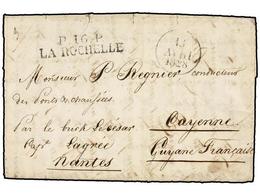 P. 16. P.
LA ROCHELLE
15
AVRIL
1828
Monsieur P Regnier conducteur
des ponts & chaussées.
Par le brick le César
Cape Lagrée
Nantes
Cayenne
Guyane Française